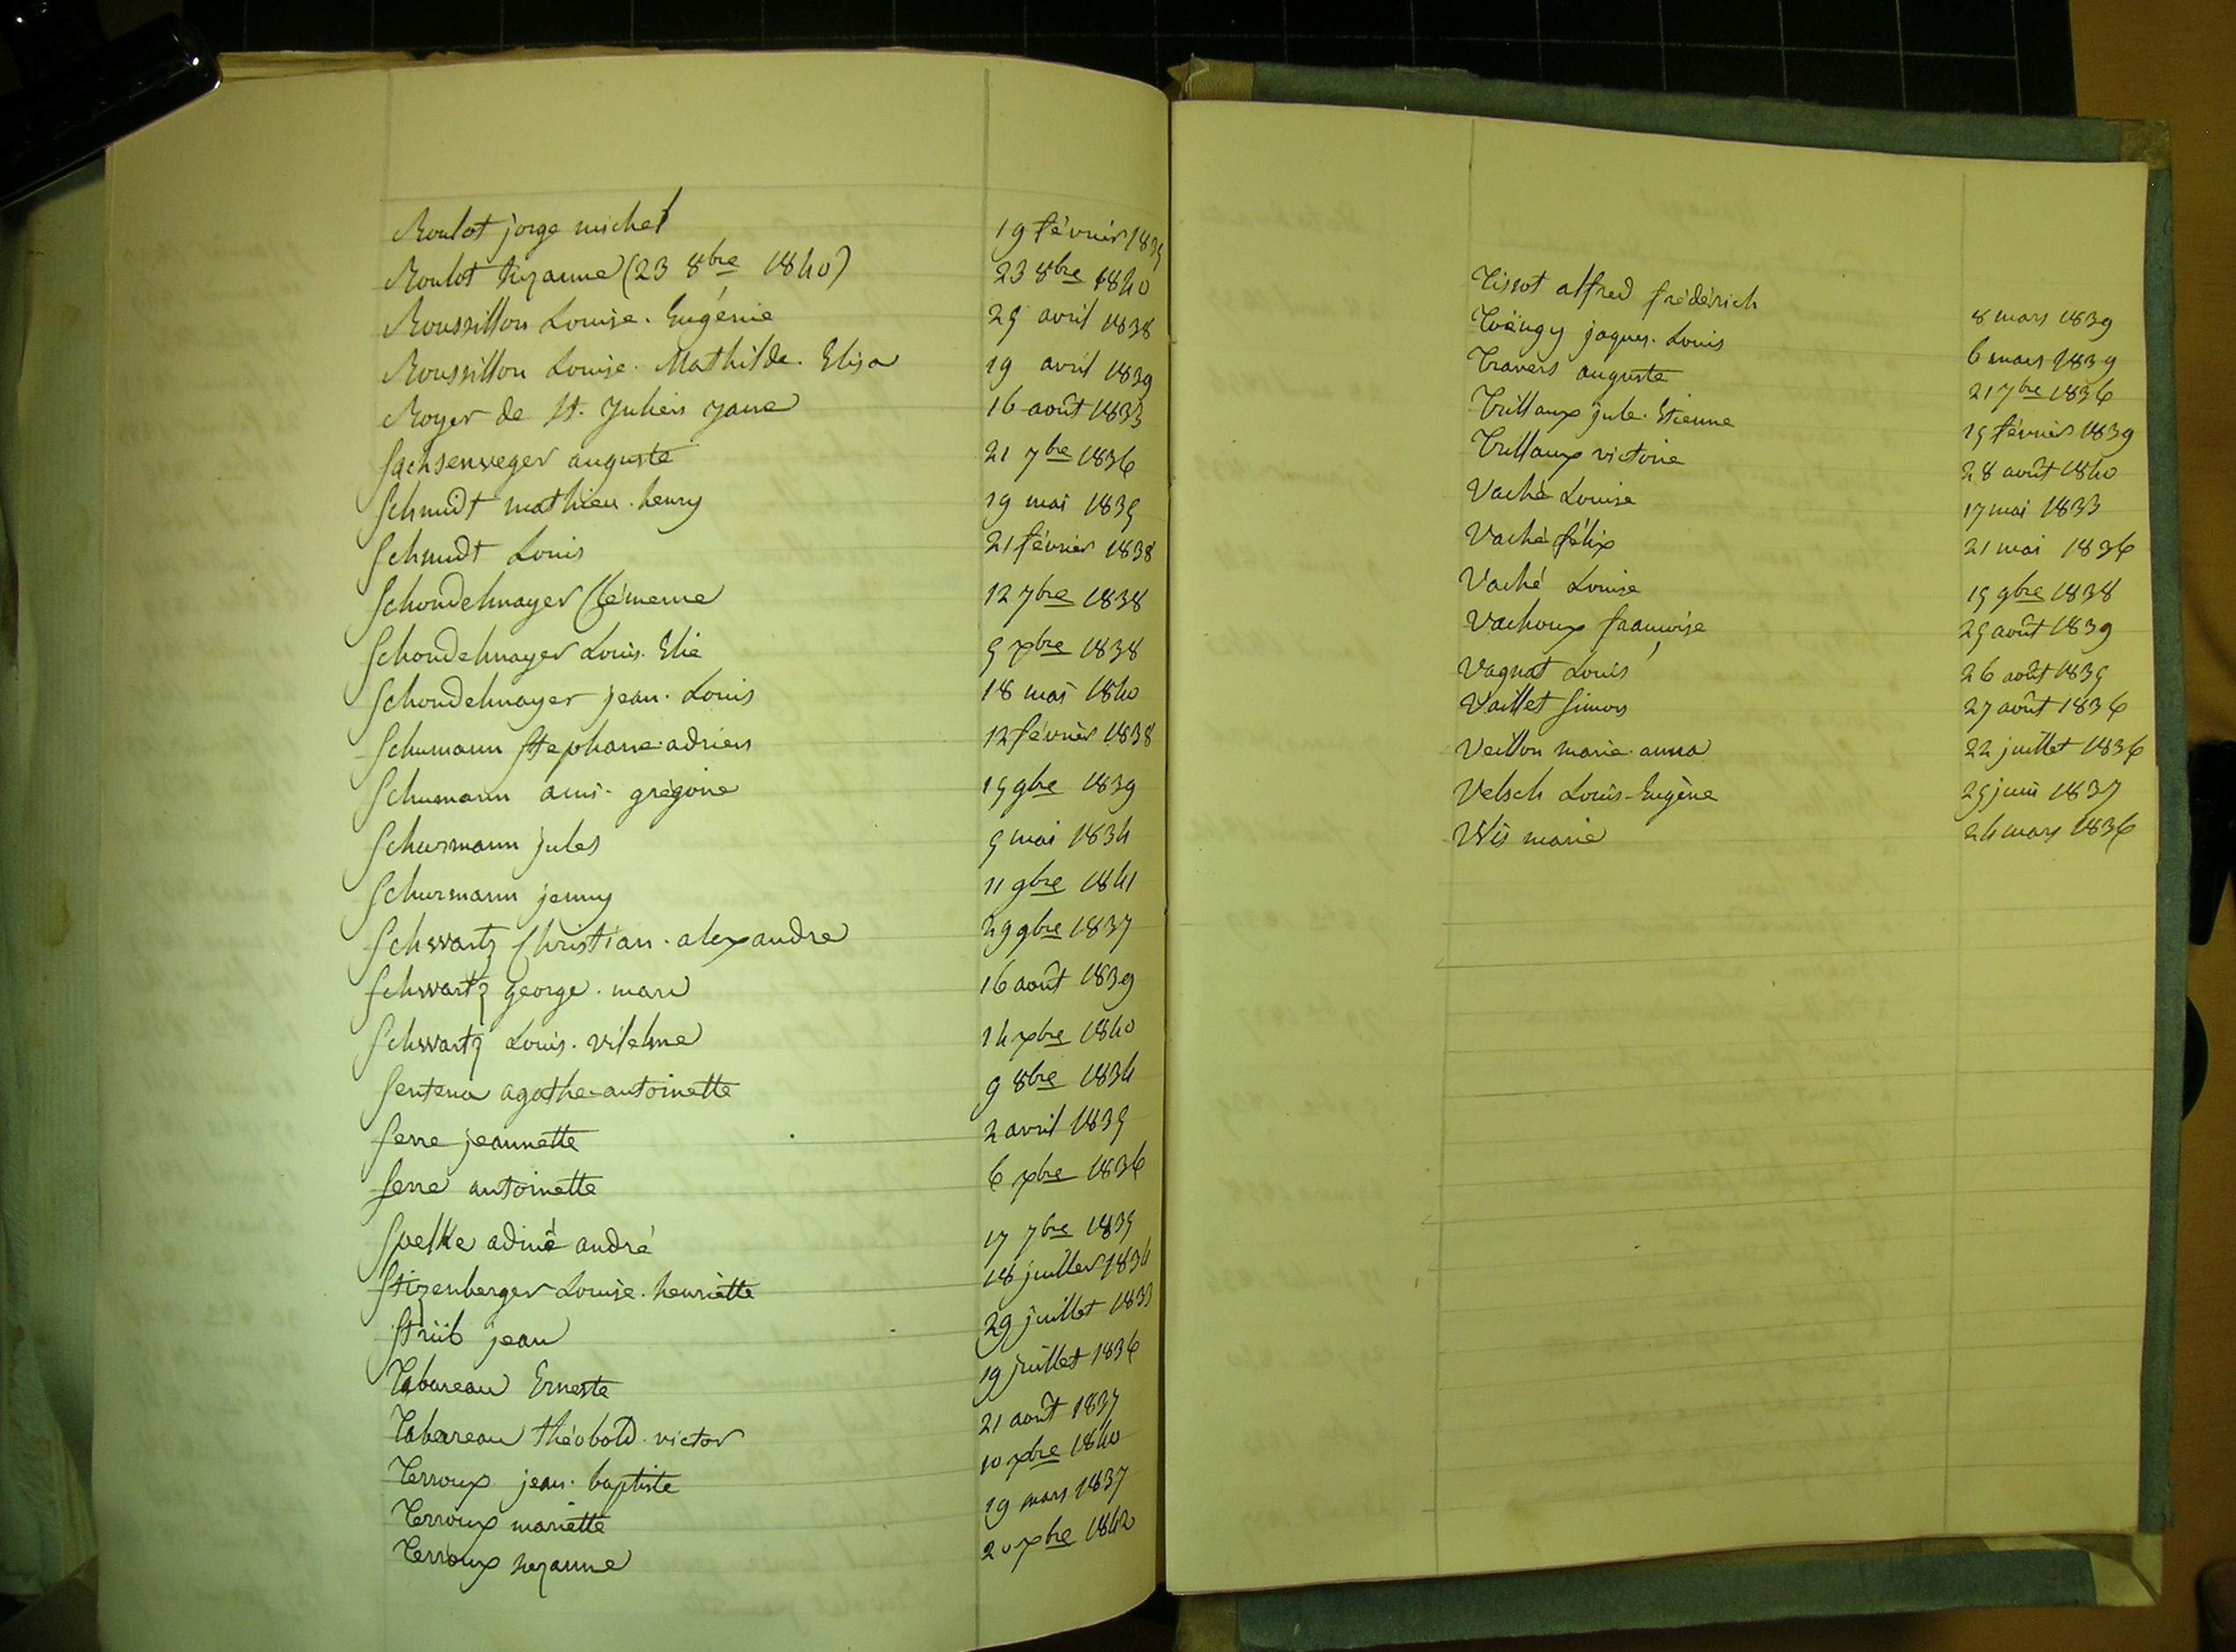 Roulot jorge michel 19 février 1835
Roulot suzanne (23 8bre 1840) 23 8bre 1840
Roussillon Louise. Eugénie 25 avril 1838
Roussillon Louise. Mathilde. Elisa 19 avril 1839
Royer de St. Julien jane 16 août 1833
Sachsenweger auguste 21 7bre 1836
Schmidt mathieu. henry 19 mai 1835
Schmidt Louis 21 février 1838
Schondelmayer Clémence 12 7bre 1838
Schondelmayer Louis. Elie 5 xbre 1838
Schondelmayer jean. Louis 18 mai 1840
Schumann Stephane. adrien 12 février 1838
Schumann ami. grégoire 15 9bre 1839
Schurmann jules 5 mai 1834
Schurmann jenny 11 9bre 1841
Schwartz Christian. alexandre 29 9bre 1837
Schwartz george. marc 16 août 1839
Schwartz Louis. vilelme 14 xbre 1840
Sentena agathe-antoinette 9 8bre 1834
Serre jeannette 2 avril 1835
Serre antoinette 6 xbre 1836
Spelke adiné andré 17 7bre 1835
Stizenberger Louise. henriette 18 juillet 1834
Strüb jean 29 juillet 1833
Tabareau Erneste 19 juillet 1836
Tabareau théobold. victor 21 août 1837
Terroux jean. baptiste 10 xbre 1840
Terroux mariette 19 mars 1837
Terroux suzanne 20 xbre 1842
Tissot alfred frédérich 8 mars 1839
jaques. Louis 6 mars 1839
Travers auguste 21 7bre 1836
Trillaux jule. Etienne 15 février 1839
Trillaux victorie 28 août 1840
Vaché Louise 17 mai 1833
Vaché félix 21 mai 1836
Vaché Louise 15 9bre 1838
Vachoux francoise 25 août 1839
Vagnat Louis 26 août 1835
Vaillet Simon 27 août 1836
Veillon marie. anna 22 juillet 1836
Velsch Louis-Eugène 25 juin 1837
Wis marie 24 mars 1836